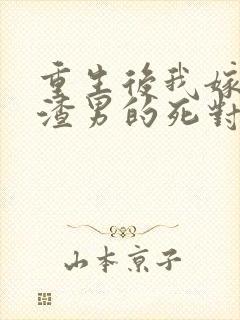 重生後我嫁
渣男的死對
山本京子